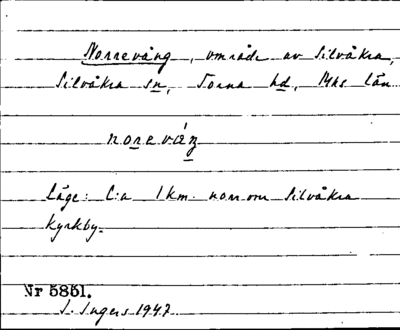 Norrevång, område av Silvåkra,
Silvåkra sn, Torna hd, Mhs län
norevaŋ
Läge: C:a 1 km. norr om Silvåkra
kyrkby.
Nr 5851.
I. Ingers 1947